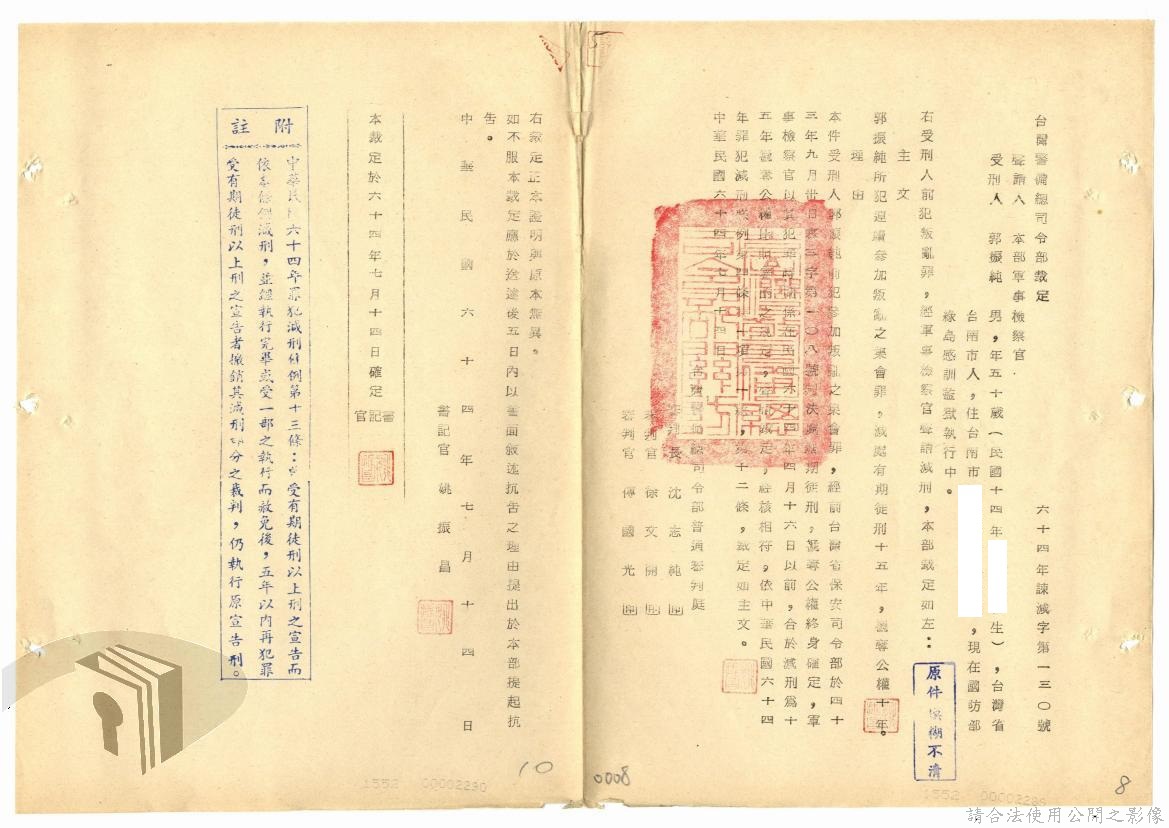 台灣警備總司令部裁定
六十四年諫減字第一三〇號
聲請人 本部軍事檢察官
受刑人 郭振純 男，年五十歲（民國十四年 生），台灣省
台南市人，住台南市 ，現在國防部
綠島感訓監獄執行中。
右受刑人前犯叛亂罪，經軍事檢察官聲請減刑，本部裁定如左：
主文
郭振純所犯連續參加叛亂之集會罪，減處有期徒刑十五年，褫奪公權十年。
理由
本件受刑人郭振純前犯參加叛亂之集會罪，經前台灣省保安司令部於四十
三年九月廿日 字第一〇八號判決處無期徒刑，褫奪公權終身確定，軍
事檢察官以其犯罪時間係在民國六十四年四月十六日以前，合於減刑為十
五年褫奪公權 之規定， 裁定，經核相符，依中華民國六十四
年罪犯減刑條例第四條 項 ，第十二條，裁定如主文。
中華民國六十四年七月十四日
台灣警備總司令部普通審判庭
審判長 沈志純
審判官 徐文開
審判官 傅國光
原件模糊不清
右裁定正本證明與原本無異。
如不服本裁定應於送達後五日內以書面敘述抗告之理由提出於本部提起抗
告。
中華民國六十四年七月十四日
書記官 姚振昌
本裁定於六十四年七月十四日確定
書記官
附註
中華民國六十四年罪犯減刑條例第十三條：「受有期徒刑以上刑之宣告而
依本條例減刑，並經執行完畢或受一部之執行而赦免後，五年以內再犯罪
受有期徒刑以上刑之宣告者撤銷其減刑部分之裁判，仍執行原宣告刑。
8
0008
10
1552 00002289
1552 00002290
請合法使用公開之影像